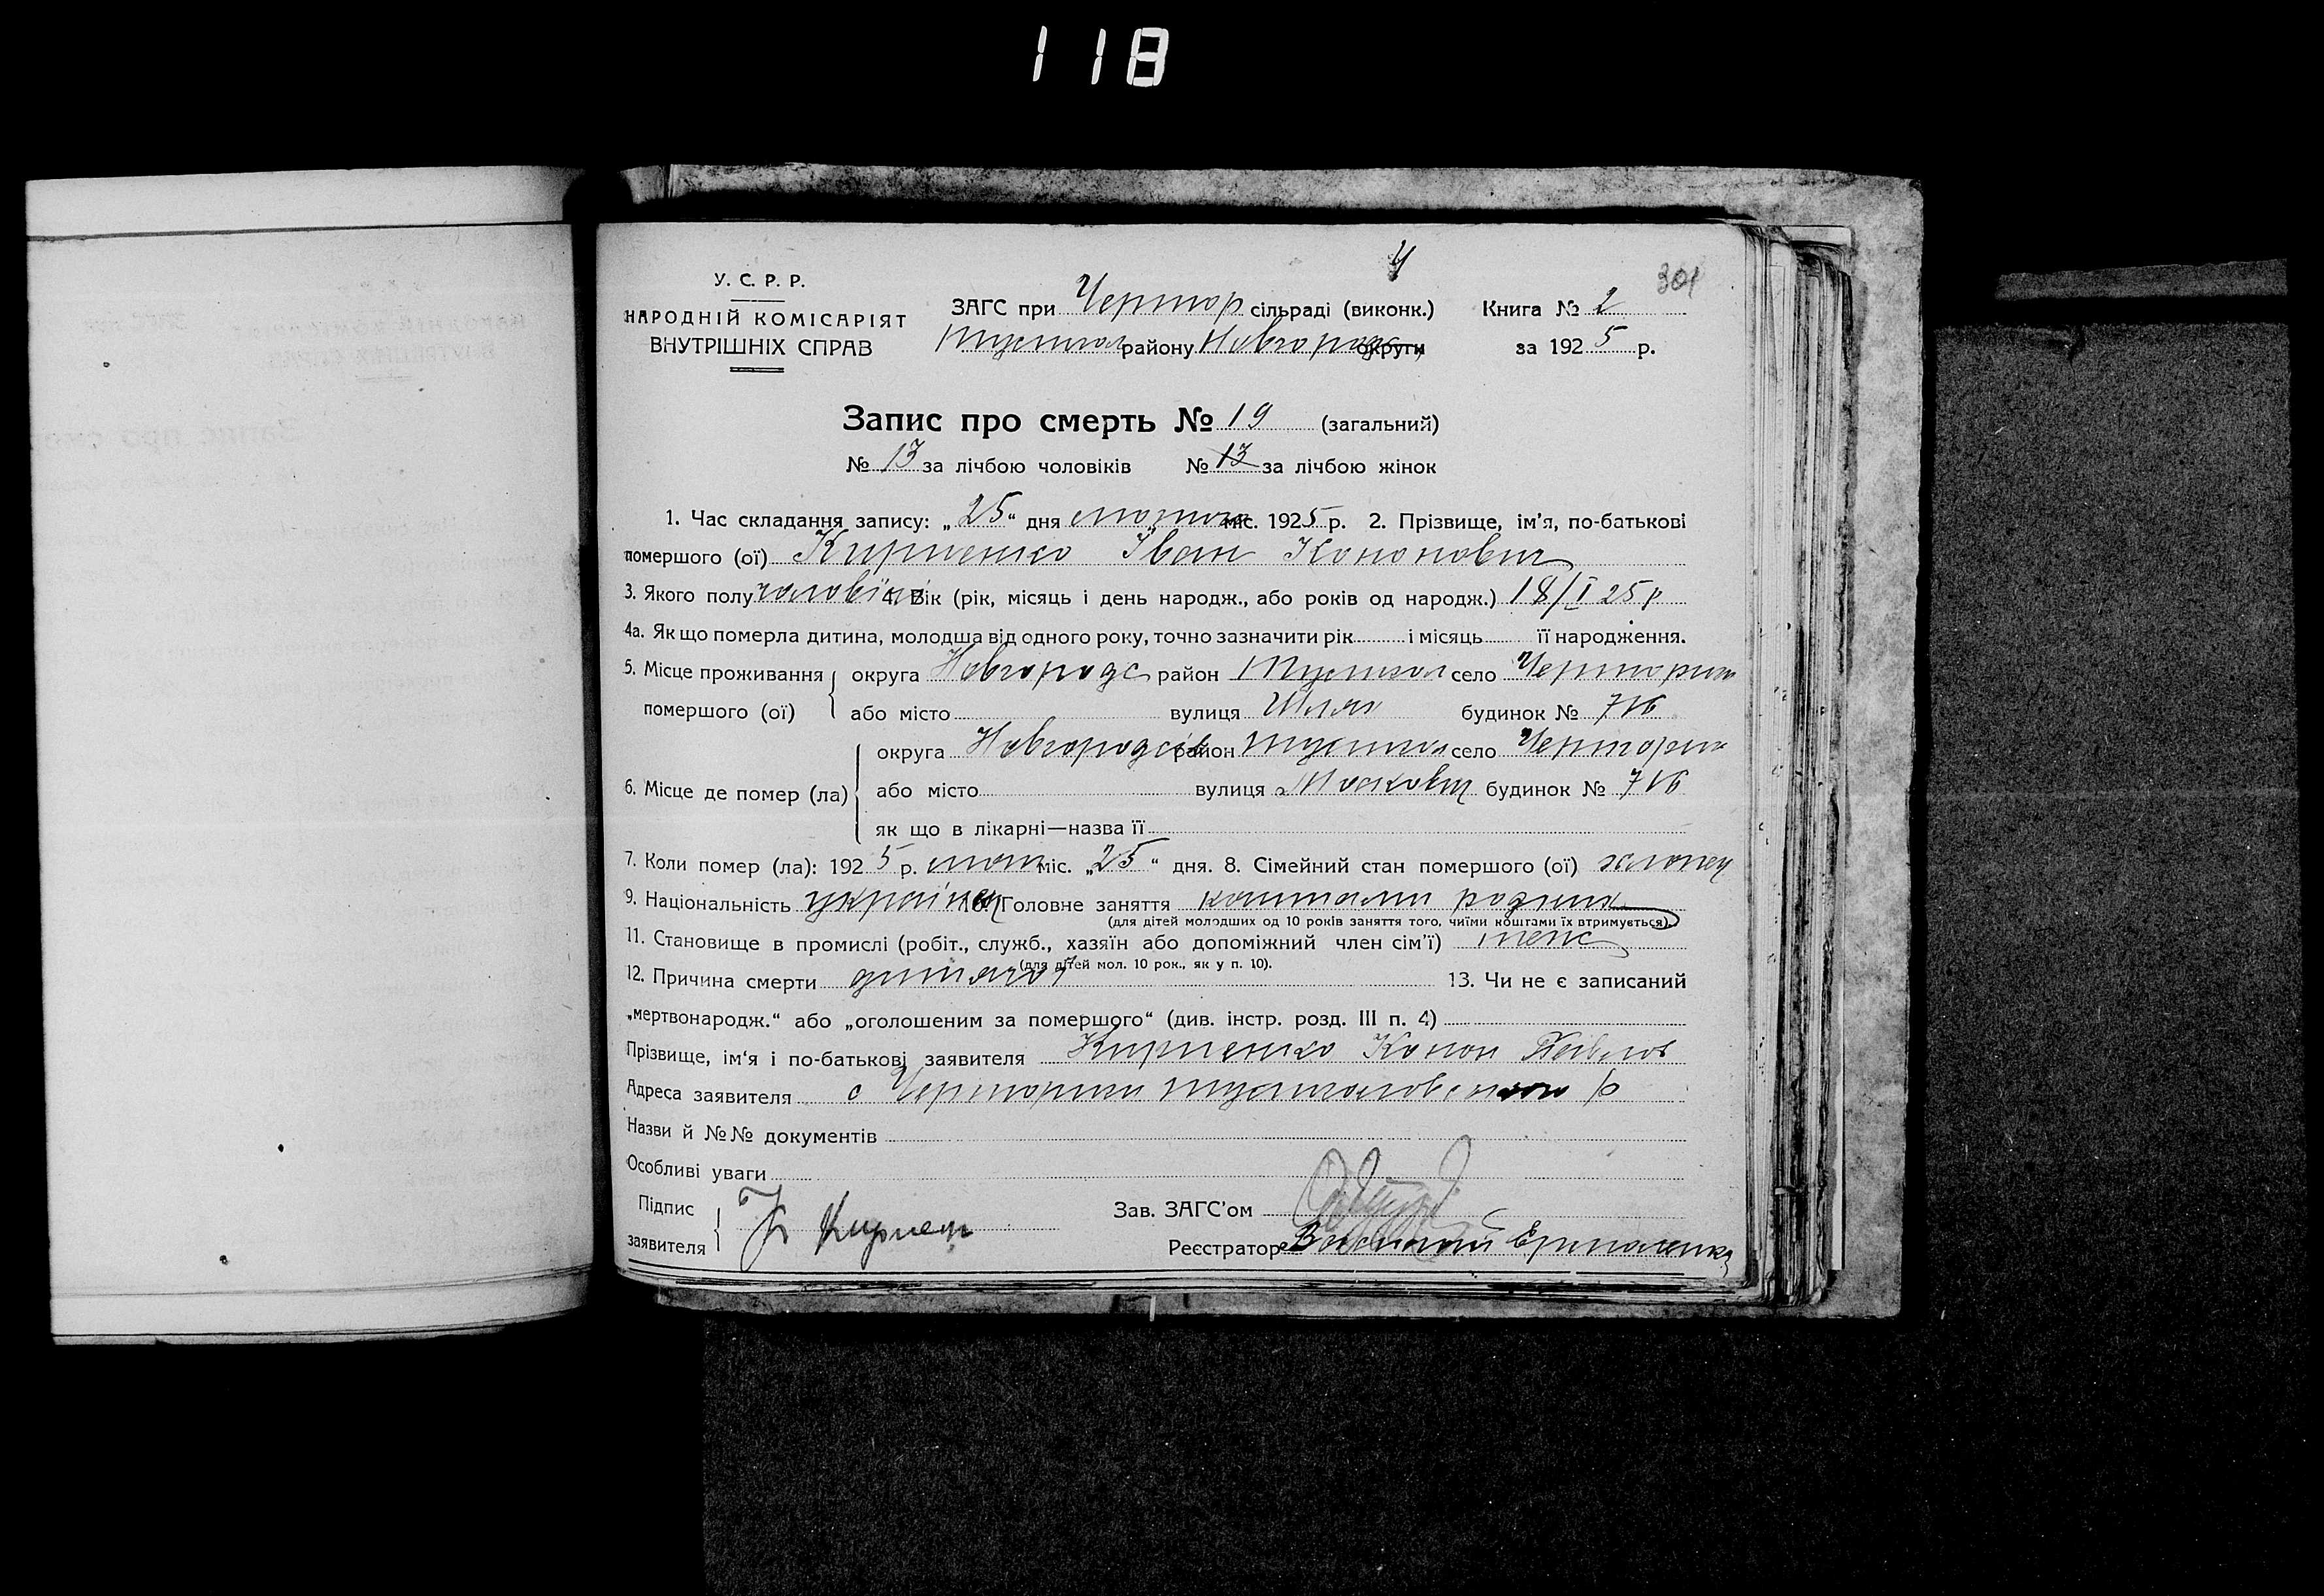 118
301
У. С. Р. Р.
НАРОДНІЙ КОМІСАРІЯТ
ВНУТРІШНІХ СПРАВ
ЗАГС при Чертор сільраді (виконк.)
району Новгородс округи
Книга № 2
за 1925 р.
Запис про смерть № 19 (загальний)
№ 13 за лічбою чоловіків № 13 за лічбою жінок
1. Час складання запису: „25“ дня лютого міс. 1925 р. 2. Прізвище, ім'я, по-батькові
помершого (ої) Кириенко Іван Кононович
3. Якого полу чоловічо 4. Вік (рік, місяць і день народж., або років од народж.) 18/I 25 р
4а. Як що померла дитина, молодша від одного року, точно зазначити рік і місяць її народження.
5. Місце проживання помершого (ої)
округа Новгородс район село Черториги
або місто вулиця Шлях будинок № 716
6. Місце де помер (ла)
округа Новгородсів район село Черториги
або місто вулиця будинок № 716
як що в лікарні—назва її
7. Коли помер (ла): 1925 р. лют міс. „25“ дня. 8. Сімейний стан помершого (ої) хлопец
9. Національність українец 10. Головне заняття коштами родини
(для дітей молодших од 10 років заняття того, чиїми коштами їх втримується).
11. Становище в промислі (робіт., служб., хазяїн або допоміжний член сім'ї) член
(для дітей мол. 10 рок., як у п. 10).
12. Причина смерти дитячої 13. Чи не є записаний
„мертвонародж.“ або „оголошеним за помершого“ (див. інстр. розд. III п. 4)
Прізвище, ім'я і по-батькові заявителя Кириенко Конон Павлов
Адреса заявителя с Черториги
Назви й №№ документів
Особливі уваги
Підпис заявителя К Кириен
Зав. ЗАГС'ом
Реєстратор Ермоленко